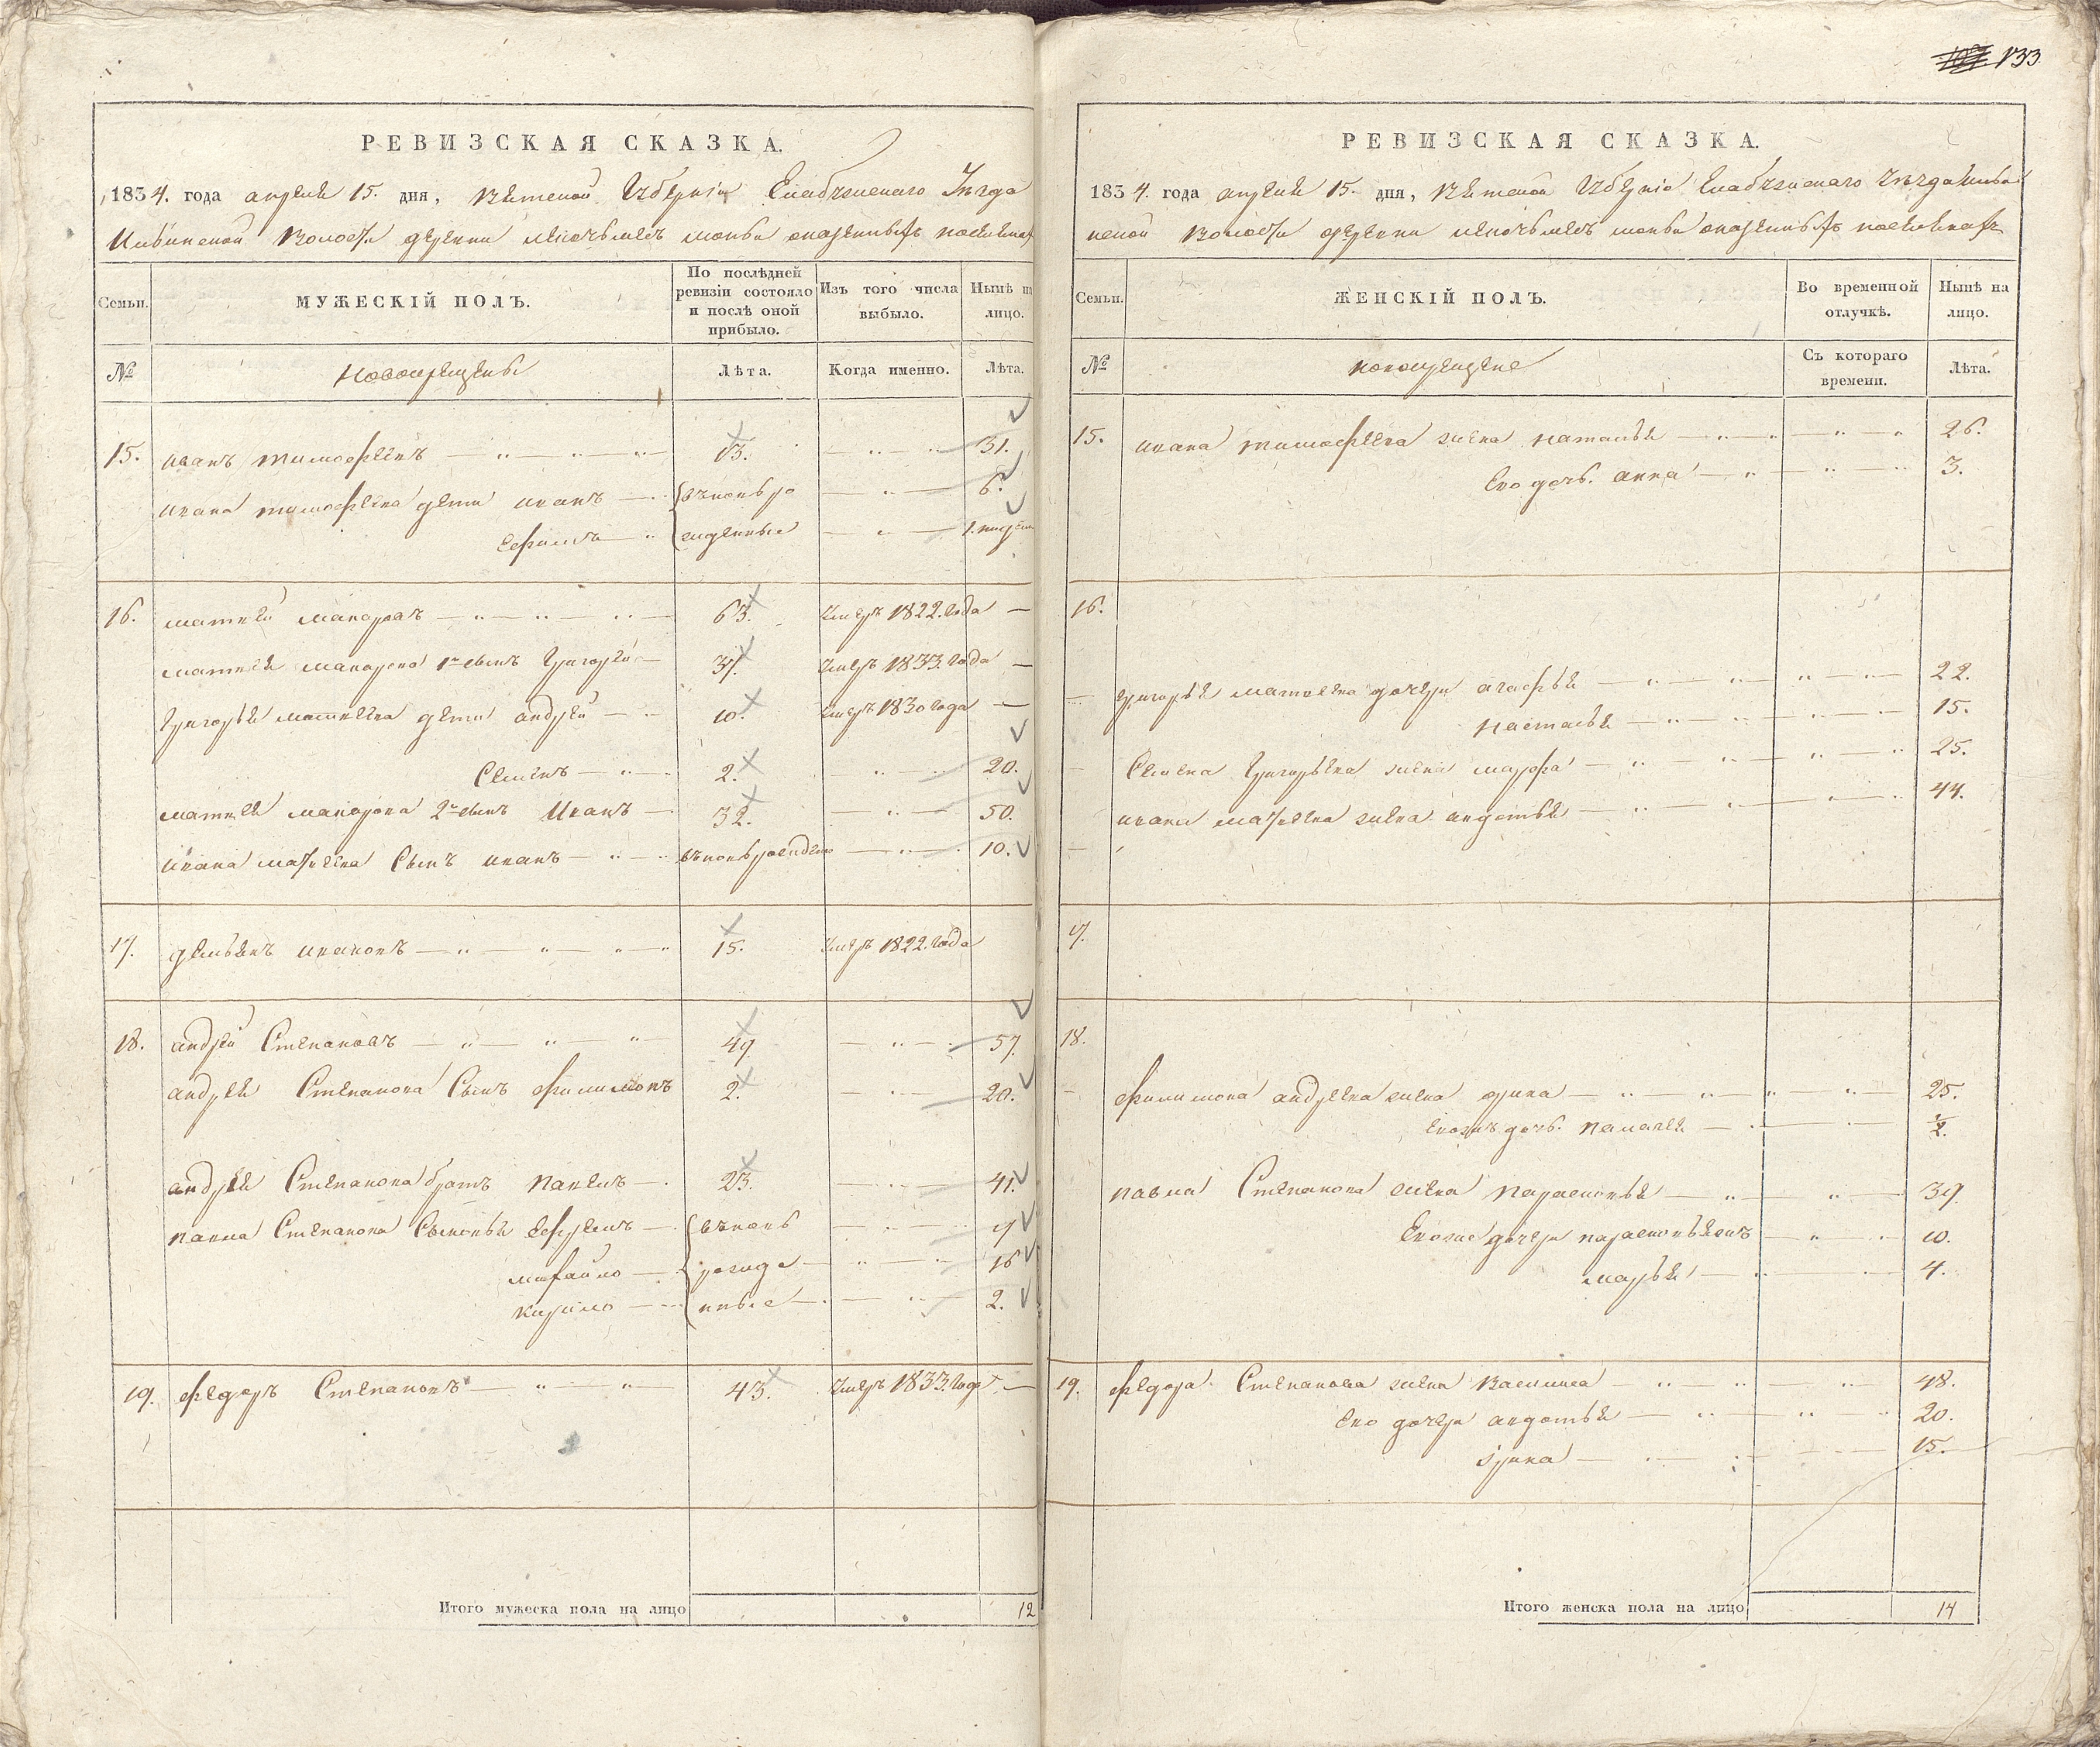 133
РЕВИЗСКАЯ СКАЗКА.
1834. года апреля 15. дня, Вятской Губернiи Елабужскаго Уезда
волости деревни
Семьи.
МУЖЕСКІЙ ПОЛЪ.
По послѣдней ревизіи состояло и послѣ оной прибыло.
Изъ того числа выбыло.
Нынѣ на лицо.
№
Новокрещены
Лѣта.
Когда именно.
Лѣта.
15. иванъ тимофеевъ 13. 31.
ивана тимофеева дети иванъ вновь ро 6.
ефимъ жденные 1. недели
16. матвей макаровъ 63. умеръ 1822. года
матвея макарова 1й сынъ григорей 37. умеръ 1833. года
григорья матвеева дети андрей 10. умеръ 1830 года
Семенъ 2. 20.
матвея макарова 2й сынъ Иванъ 32. 50.
ивана матвеева Сынъ иванъ вновь рожденъ 10.
17. демьянъ ивановъ 15. умеръ 1822. года
18. андрей Степановъ 49 57.
андрея Степанова Сынъ филимонъ 2. 20.
андрея Степанова братъ павелъ 23. 41.
павла Степанова Сыновья ефремъ вновь 9
михайло рожде 16
кирило нные 2.
19. федоръ Степановъ 43. умеръ 1833. года
Итого мужеска пола на лицо 12
РЕВИЗСКАЯ СКАЗКА.
1834. года апреля 15. дня, Вятской Губернiи Елабужскаго уезда
волости деревни
Семьи.
ЖЕНСКІЙ ПОЛЪ.
Во временной отлучкѣ.
Нынѣ на лицо.
№
новокрещене
Съ котораго времени.
Лѣта.
15. ивана тимофеева жена наталья 26.
Ево дочь. анна 3.
16.
григорья матвеева дочери агафья 22.
настасья 15.
Семена григорьева жена марфа 25.
ивана матвеева жена авдотья 44.
17.
18.
филимона андреева жена орина 25.
евожъ дочь. пелагея ½.
павла Степанова жена парасковья 39.
Евожъ дочери парасковья 10.
марья 4.
19. федора Степанова жена василиса 48.
ево дочери авдотья 20.
орина 15.
Итого женска пола на лицо 14